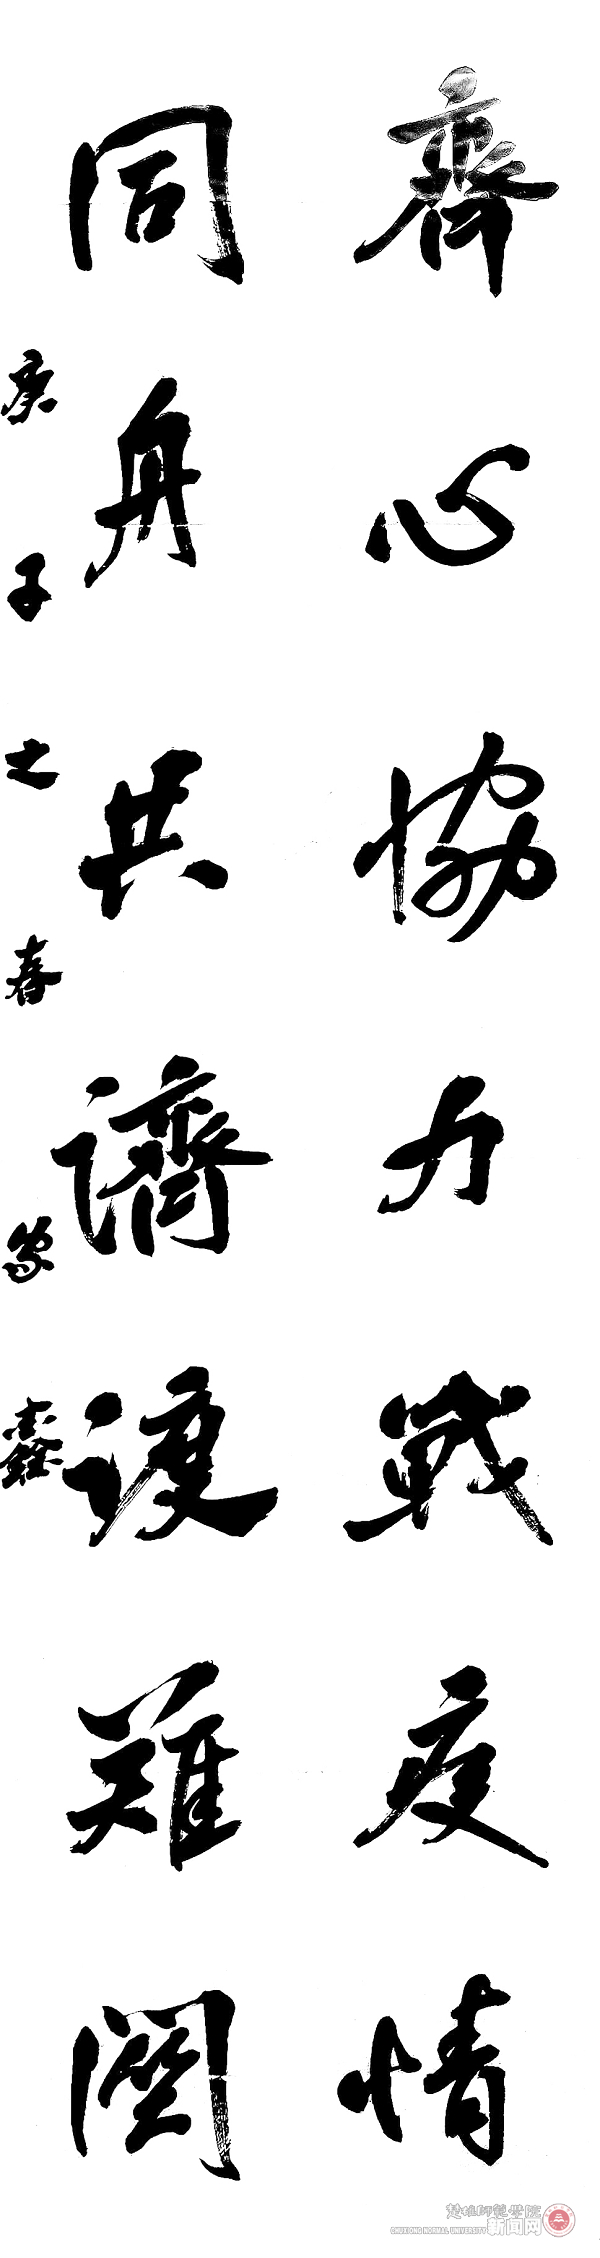 齊心協力戰疫情
同舟共濟渡難關
庚子之春 鑫
楚雄師範學院
新闻网
CHUXIONG NORMAL UNIVERSITY